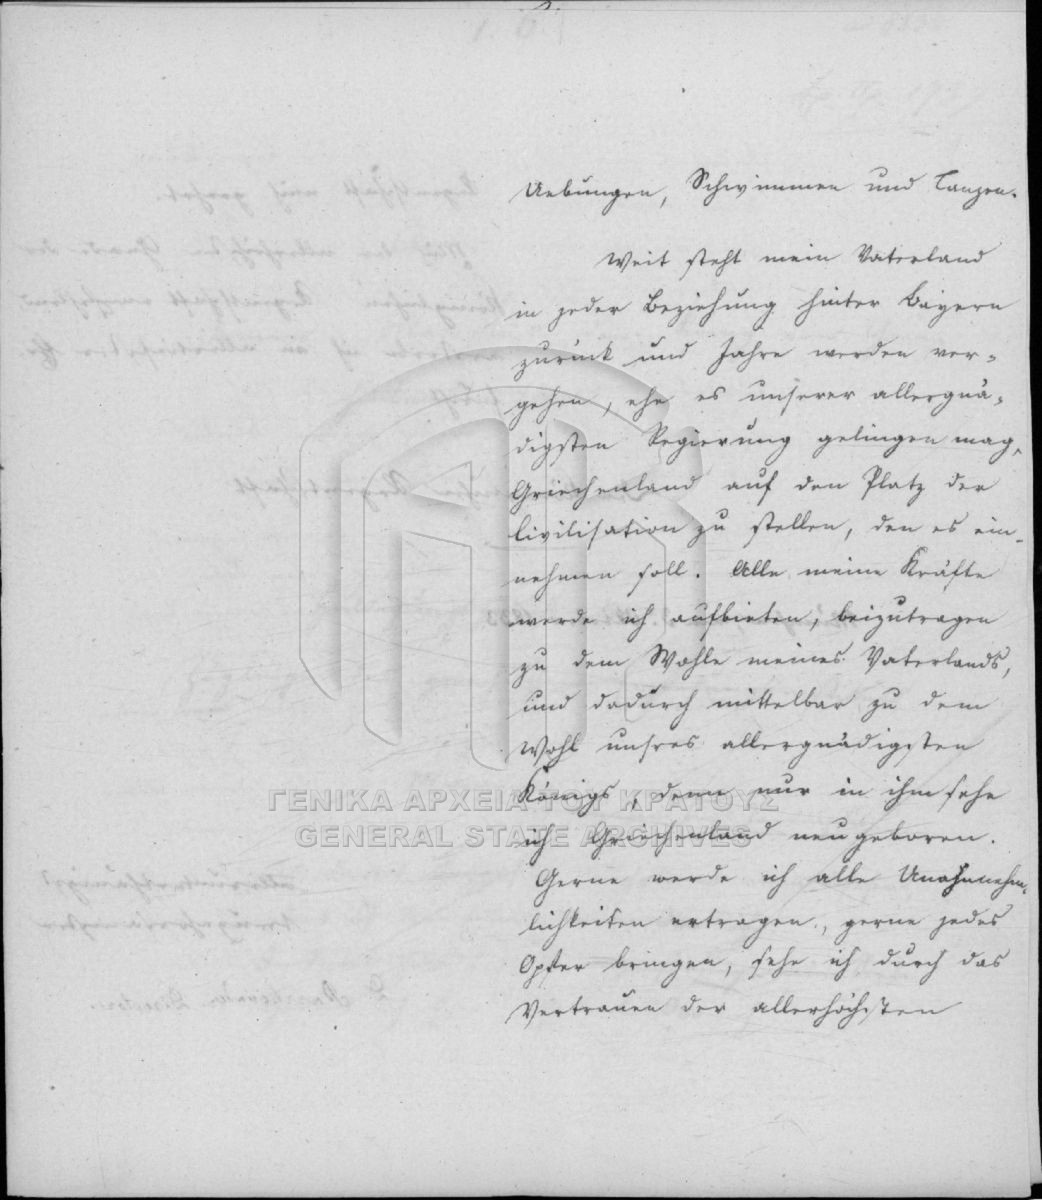 Uebungen, Schwimmen und Tanzen.
Weit steht mein Vaterland
in jeder Beziehung hinter Bayern
zurück und Jahre werden ver-
gehen, ehe es unserer allergnä-
digsten Regierung gelingen mag,
Griechenland auf den Platz der
Civilisation zu stellen, den es ein-
nehmen soll. Alle meine Kräfte
werde ich aufbieten, beizutragen
zu dem Wohle meines Vaterlands,
und dadurch mittelbar zu dem
Wohl unsres allergnädigsten
Königs, denn nur in ihm sehe
ich Griechenland neugeboren.
Gerne werde ich alle Unannehm-
lichkeiten ertragen, gerne jedes
Opfer bringen, sehe ich durch das
Vertrauen der allerhöchsten
ΓΕΝΙΚΑ ΑΡΧΕΙΑ ΤΟΥ ΚΡΑΤΟΥΣ
GENERAL STATE ARCHIVES